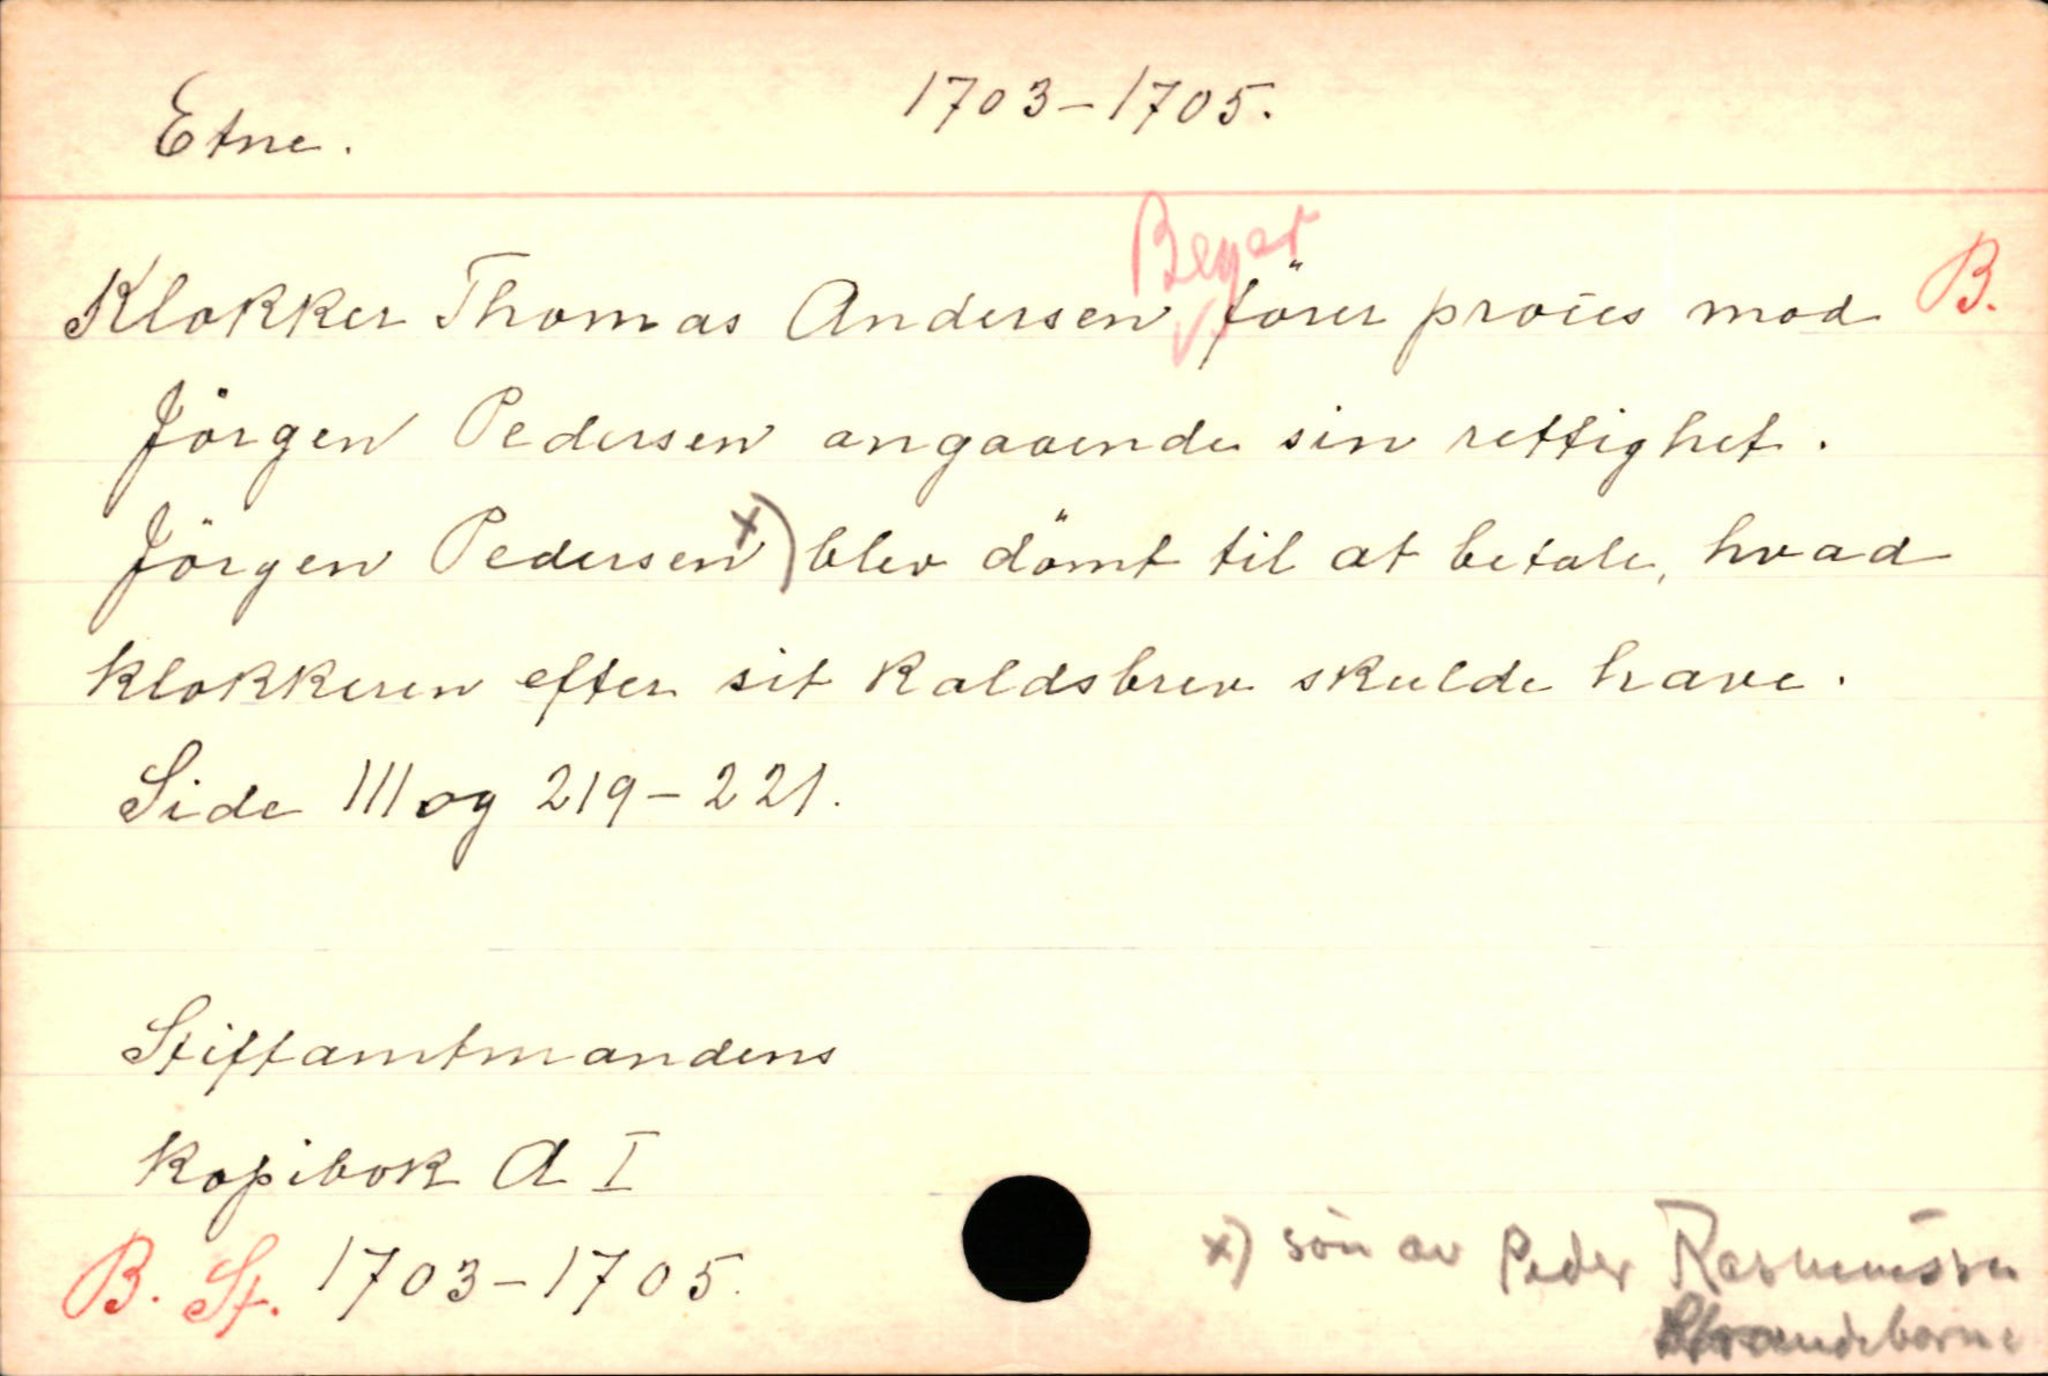 Etne. 1703-1705.
Beyer
Klokker Thomas Andersen fører procies mod B.
Jörgen Pedersen angaaende sin rettighet.
Jörgen Pedersen x) blev dömt til at betale, hvad
klokkeren efter sit kaldsbrev skulde have.
Side 111 og 219-221.
Stiftamtmandens
Kopibok A I
B. St. 1703-1705.
x) sön av Peder Rasmussen